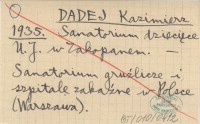 DADEJ Kazimierz
1935. Sanatorium dziecięce
U.J. w Zakopanem. —
Sanatorium gruźlicze i
szpitale zakaźne w Polsce
(Warszawa).
BT/010/0412